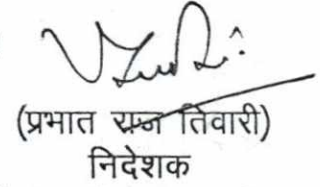 (प्रभात राज तिवारी)
निदेशक